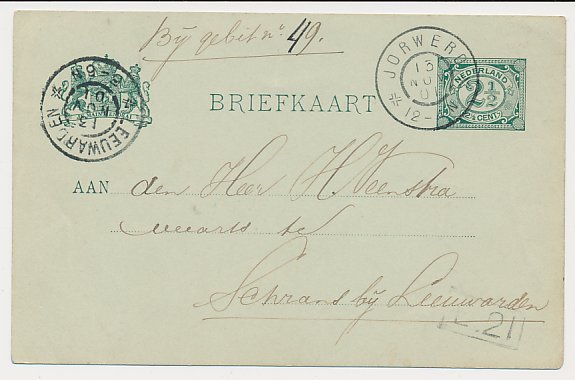 Bij gebit nº 49.
JORWERD
13
NO
0
12-
N
NEDERLAND
2½
2½ CENT
LEEUWARDEN
13
NOV
01
6-8N
BRIEFKAART
AAN den Heer H. Veenstra
te
Schrans bij Leeuwarden
L.21